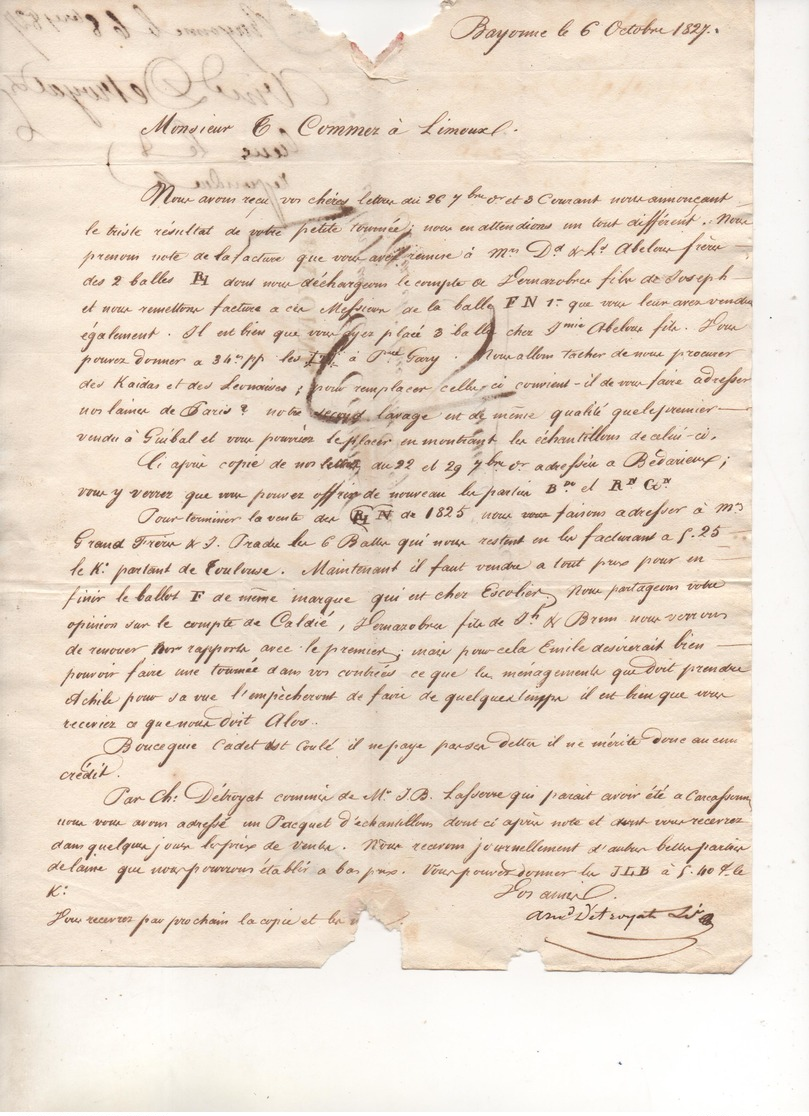 Bayonne le 6 Octobre 1827.
Monsieur T. Commez à Limoux.
Nous avons reçu vos chères lettres du 26 7bre dr et 3 Courant nous annonçant
le triste résultat de votre petite tournée ; nous en attendions un tout différent. Nous
prenons note de la facture que vous avez remise à Mrs Dd & Ls Abelous frères
des 2 balles dont nous déchargeons le compte de Homazobres fils de Joseph
et nous remettons facture a ces Messieurs de la balle FN 1re que vous leur avez vendu
également. Il est bien que vous ayez placé 3 balles chez Abelous fils. Vous
pouvez donner a les à Gary. Nous allons tacher de nous procurer
des Kaidas et des Leonaises ; pour remplacer celles ci convient-il de vous faire adresser
nos laines de Paris ? notre second lavage est de même qualité que le premier
vendu à Guibal et vous pourriez le placer en montrant les échantillons de celui-ci.
Ci après copie de nos lettres du 22 et 29 7bre dr adressées a Bédarieux ;
vous y verrez que vous pouvez offrir de nouveau les parties et
Pour terminer la vente des N de 1825 nous vous faisons adresser à Mrs
Grand Frères & J. Prades les 6 Balles qui nous restent en les facturant a 5.25
le K. partant de Toulouse. Maintenant il faut vendre a tout prix pour en
finir le ballot F de même marque qui est chez Escolier. Nous partageons votre
opinion sur le compte de Caldié, Homazobres fils de Jh & Brun nous verrons
de renouer nos rapports avec le premier ; mais pour cela Emile désirerait bien
pouvoir faire une tournée dans vos contrées ce que les ménagements que doit prendre
Achile pour sa vue l'empêcheront de faire de quelque temps il est bien que vous
receviez ce que nous doit Alos.
Boucequie Cadet est coulé il ne paye pas ses dettes il ne mérite donc aucun
crédit.
Par Ch. Détroyat commis de Mr J.B. Lasserre qui parait avoir été a Carcassonne
nous vous avons adressé un Pacquet d'échantillons dont ci après note et dont vous recevrez
dans quelques jours les prix de vente. Nous recevons journellement d'autres belles parties
de laine que nous pourrons établir a bas prix. Vous pouvez donner les JLB à 5.40 le
K.
Vos amis
Détroyat
Vous recevrez par prochain la copie et les